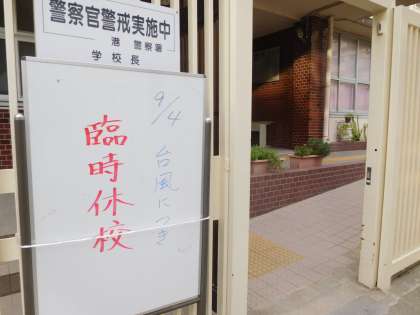 警察官警戒実施中
港 警察署
学校長
9/4 台風につき
臨時休校